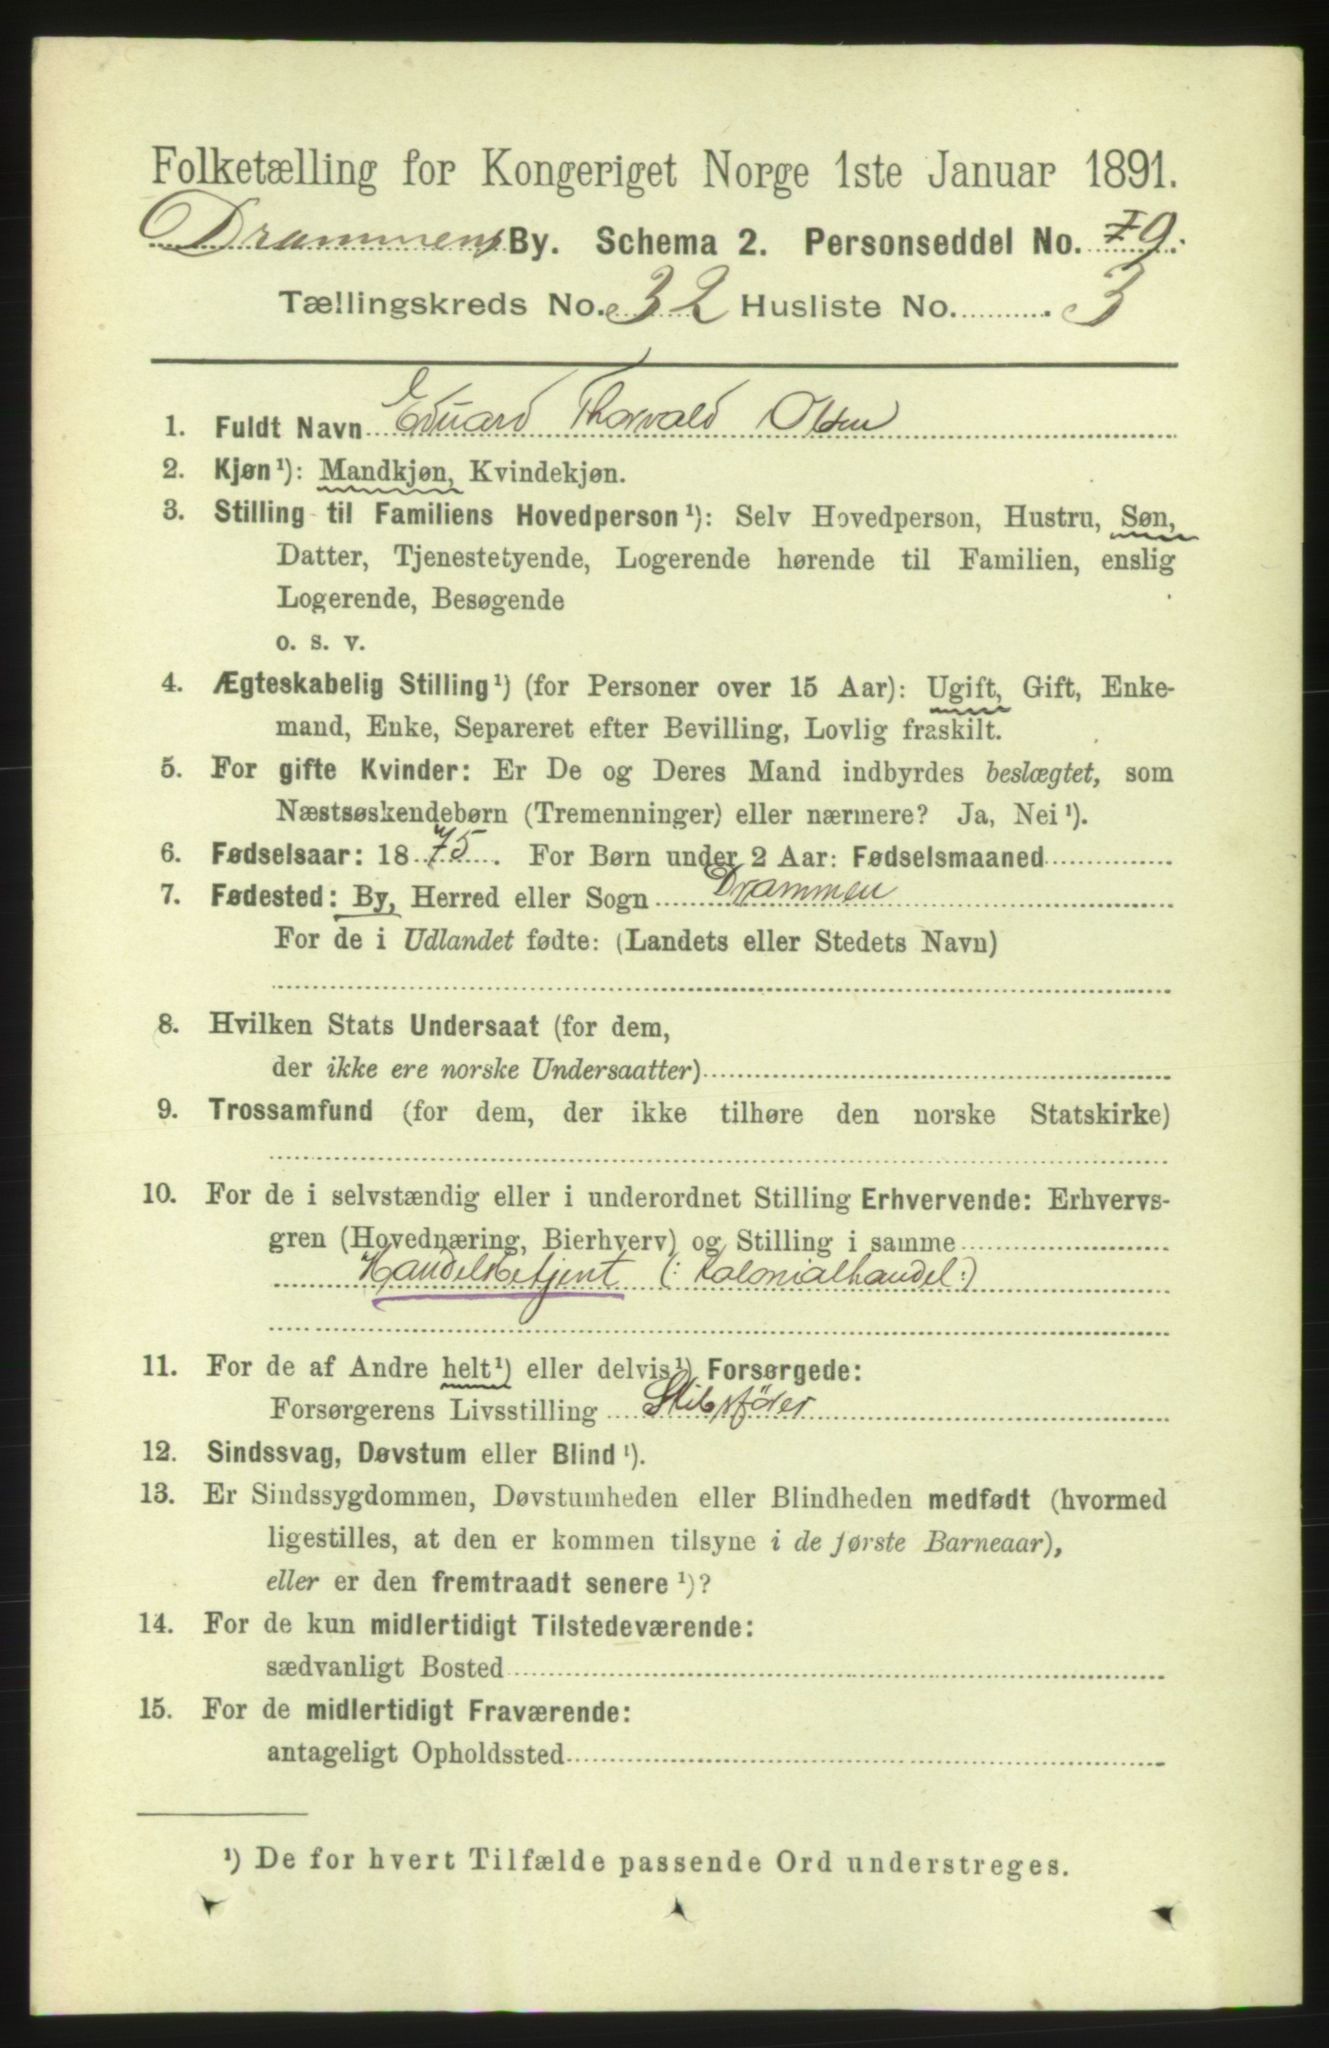 Folketælling for Kongeriget Norge 1ste Januar 1891.
Drammens By. Schema 2. Personseddel No. 79.
Tællingskreds No. 32 Husliste No. 3
1. Fuldt Navn Eduard Thorvald Olsen
2. Kjøn¹): Mandkjøn, Kvindekjøn.
3. Stilling til Familiens Hovedperson¹): Selv Hovedperson, Hustru, Søn,
Datter, Tjenestetyende, Logerende hørende til Familien, enslig
Logerende, Besøgende
o. s. v.
4. Ægteskabelig Stilling¹) (for Personer over 15 Aar): Ugift, Gift, Enke-
mand, Enke, Separeret efter Bevilling, Lovlig fraskilt.
5. For gifte Kvinder: Er De og Deres Mand indbyrdes beslægtet, som
Næstsøskendebørn (Tremenninger) eller nærmere? Ja, Nei¹).
6. Fødselsaar: 1875. For Børn under 2 Aar: Fødselsmaaned
7. Fødested: By, Herred eller Sogn Drammen
For de i Udlandet fødte: (Landets eller Stedets Navn)
8. Hvilken Stats Undersaat (for dem,
der ikke ere norske Undersaatter)
9. Trossamfund (for dem, der ikke tilhøre den norske Statskirke)
10. For de i selvstændig eller i underordnet Stilling Erhvervende: Erhvervs-
gren (Hovednæring, Bierhverv) og Stilling i samme
Handelsbetjent (: Kolonialhandel:)
11. For de af Andre helt¹) eller delvis¹) Forsørgede:
Forsørgerens Livsstilling Skibsfører
12. Sindssvag, Døvstum eller Blind¹).
13. Er Sindssygdommen, Døvstumheden eller Blindheden medfødt (hvormed
ligestilles, at den er kommen tilsyne i de første Barneaar),
eller er den fremtraadt senere¹)?
14. For de kun midlertidigt Tilstedeværende:
sædvanligt Bosted
15. For de midlertidigt Fraværende:
antageligt Opholdssted
¹) De for hvert Tilfælde passende Ord understreges.